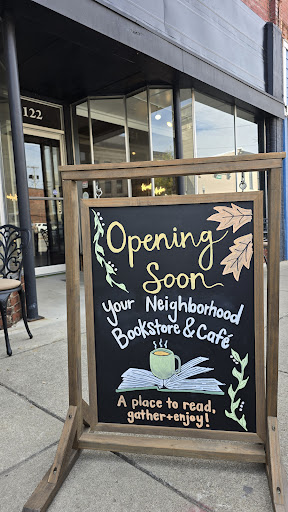 122
Opening
Soon
Your Neighborhood
Bookstore & Café
A place to read,
gather + enjoy!